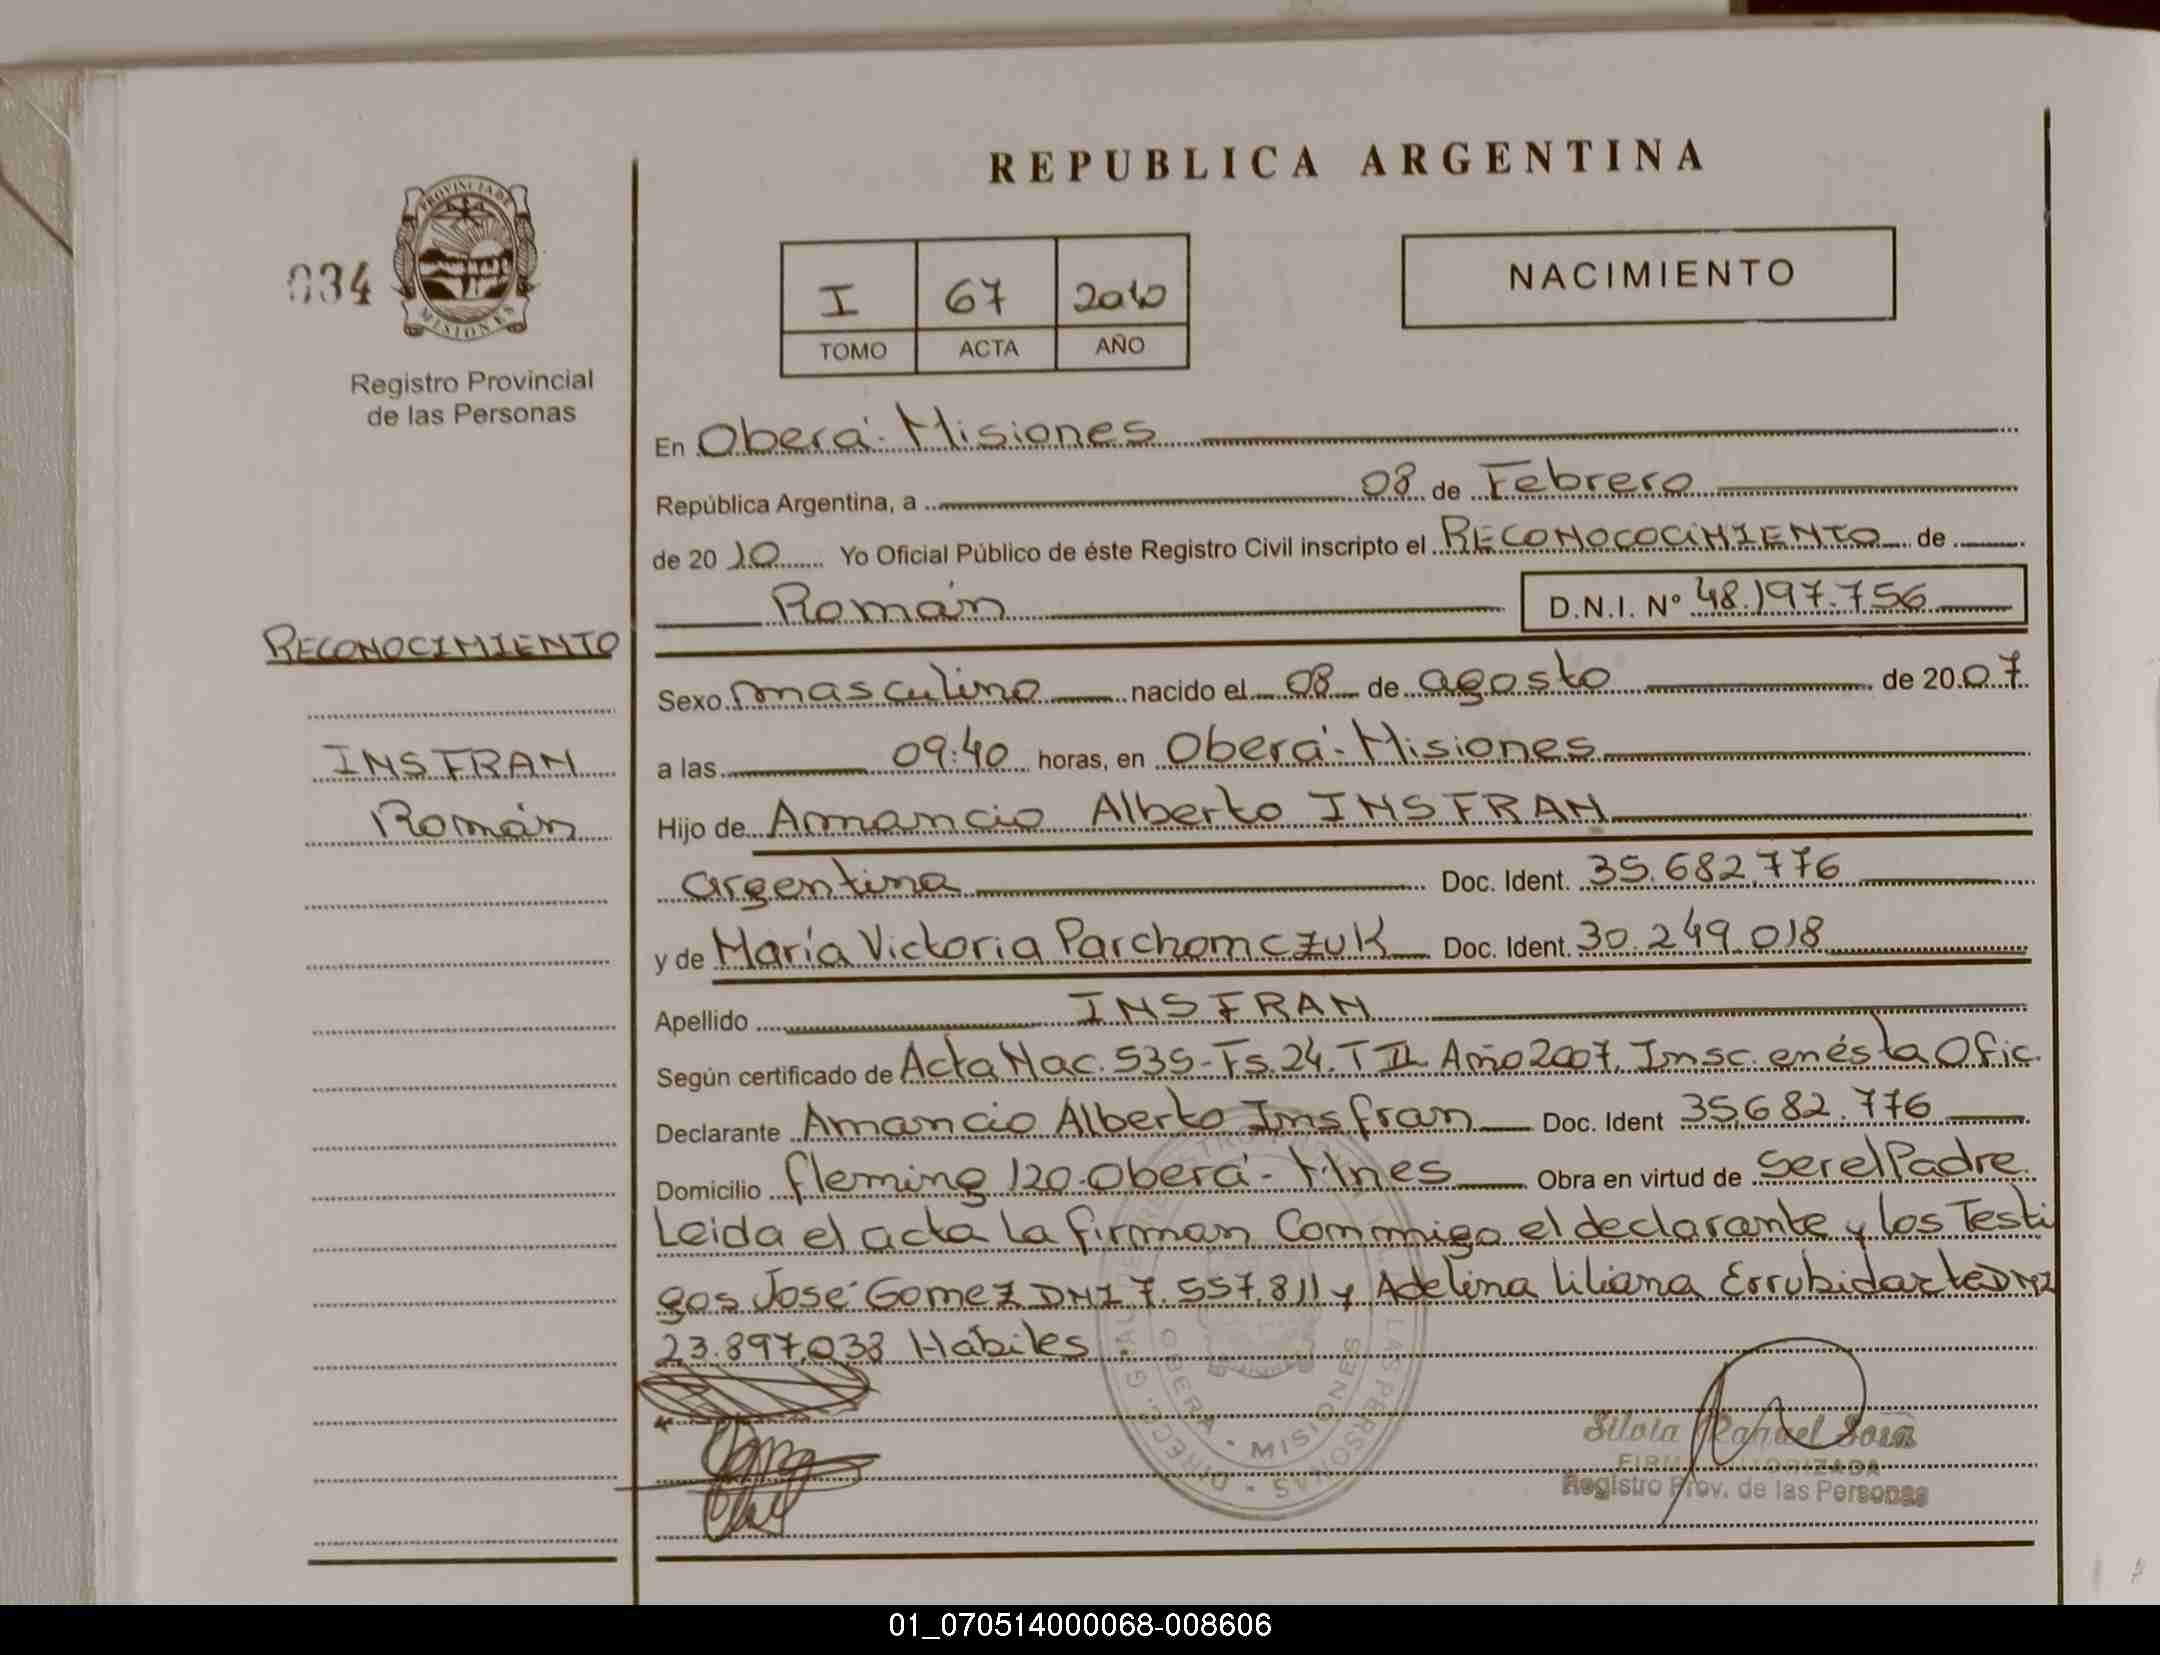 REPUBLICA ARGENTINA
034
PROVINCIA DE
MISIONES
Registro Provincial
de las Personas
I 67 2010
TOMO ACTA AÑO
NACIMIENTO
En Oberá - Misiones
República Argentina, a 08 de Febrero
de 2010 Yo Oficial Público de éste Registro Civil inscripto el RECONOCOCIMIENTO de
Román D.N.I. Nº 48.197.756
RECONOCIMIENTO
INSFRAN
Román
Sexo masculino nacido el 08 de agosto de 2007
a las 09:40 horas, en Oberá - Misiones
Hijo de Amancio Alberto INSFRAN
argentina Doc. Ident. 35.682.776
y de María Victoria Parchomczuk Doc. Ident. 30.249.018
Apellido INSFRAN
Según certificado de Acta Nac. 535 - Fs. 24. T II Año 2007, Insc. en ésta Ofic.
Declarante Amancio Alberto Insfran Doc. Ident 35,682.776
Domicilio fleming 120 - Oberá - Mnes Obra en virtud de ser el Padre.
Leida el acta la firman Conmigo el declarante y los Testi
gos José Gomez DNI 7.557.811 y Adelina liliana Errubidarte DNI
23.897.033 Hábiles
OBERA • MISIONES
LAS PERSONAS • DIRECC. G
Silvia Raquel Sosa
FIRMA AUTORIZADA
Registro Prov. de las Personas
01_070514000068-008606